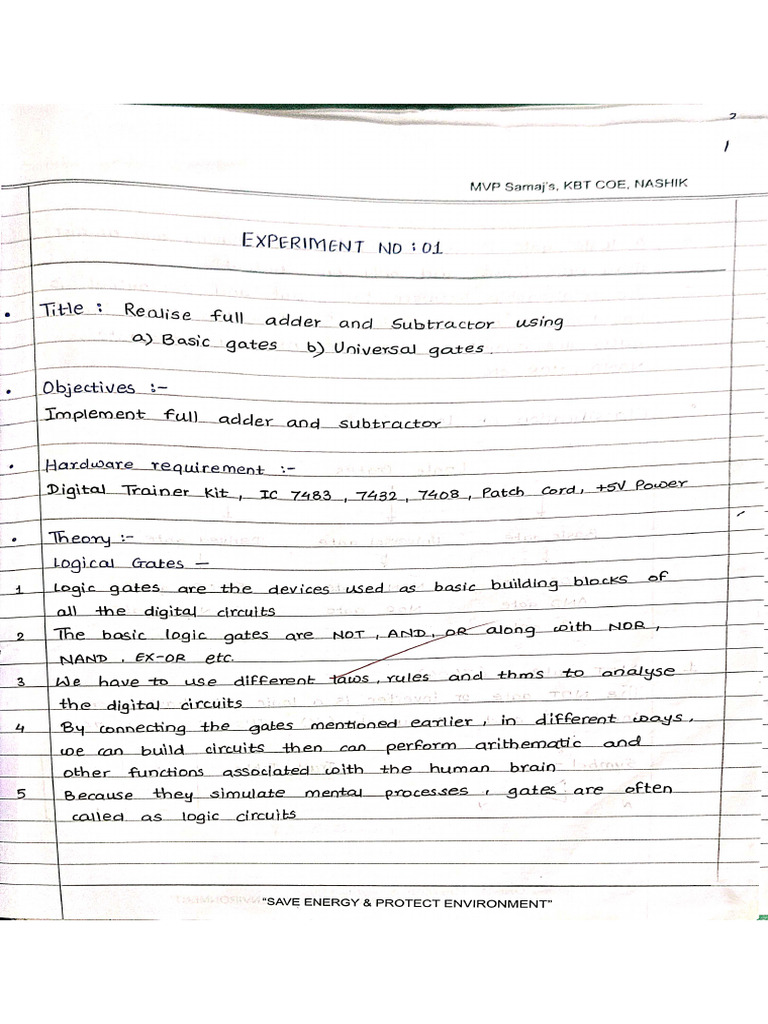 2
1
MVP Samaj's, KBT COE, NASHIK
EXPERIMENT NO : 01
• Title : Realise full adder and Subtractor using
a) Basic gates b) Universal gates.
• Objectives :-
Implement full adder and subtractor
• Hardware requirement :-
Digital Trainer Kit, IC 7483, 7432, 7408, Patch Cord, +5V Power
• Theory :-
Logical Gates —
1 Logic gates are the devices used as basic building blocks of
all the digital circuits
2 The basic logic gates are NOT, AND, OR along with NOR,
NAND, EX-OR etc.
3 We have to use different laws, rules and thms to analyse
the digital circuits
4 By connecting the gates mentioned earlier, in different ways,
we can build circuits then can perform arithematic and
other functions associated with the human brain
5 Because they simulate mental processes, gates are often
called as logic circuits
"SAVE ENERGY & PROTECT ENVIRONMENT"